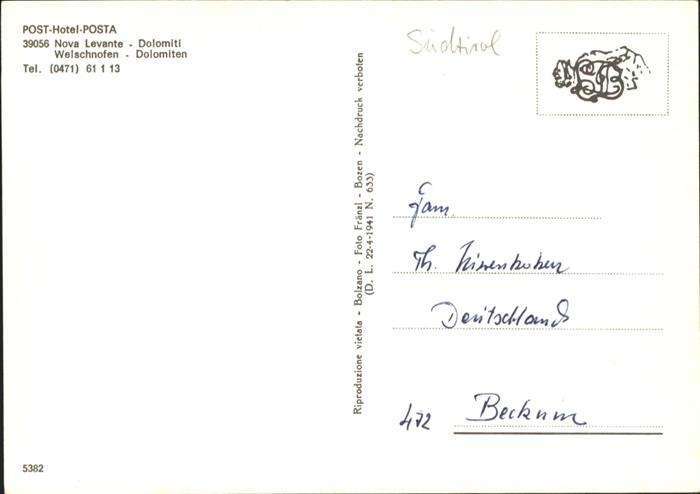 POST-Hotel-POSTA
39056 Nova Levante - Dolomiti
Welschnofen - Dolomiten
Tel. (0471) 61 1 13
Südtirol
Riproduzione vietata - Bolzano - Foto Fränzl - Bozen - Nachdruck verboten
(D. L. 22-4-1941 N. 633)
Fam.
Th.
Deutschland
472 Beckum
5382